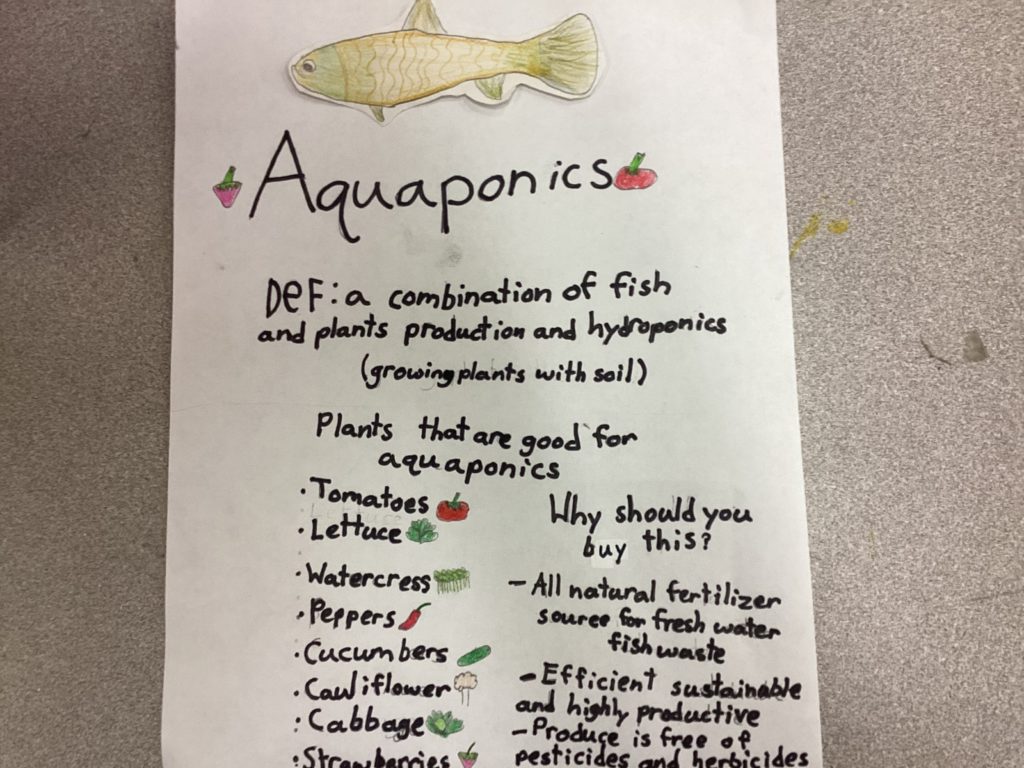 Aquaponics
DeF: a combination of fish
and plants production and hydroponics
(growing plants with soil)
Plants that are good for
aquaponics
· Tomatoes
· Lettuce
· Watercress
· Peppers
· Cucumbers
· Cauliflower
· Cabbage
· Strawberries
Why should you
buy this?
- All natural fertilizer
source for fresh water
fish waste
- Efficient sustainable
and highly productive
- Produce is free of
pesticides and herbicides